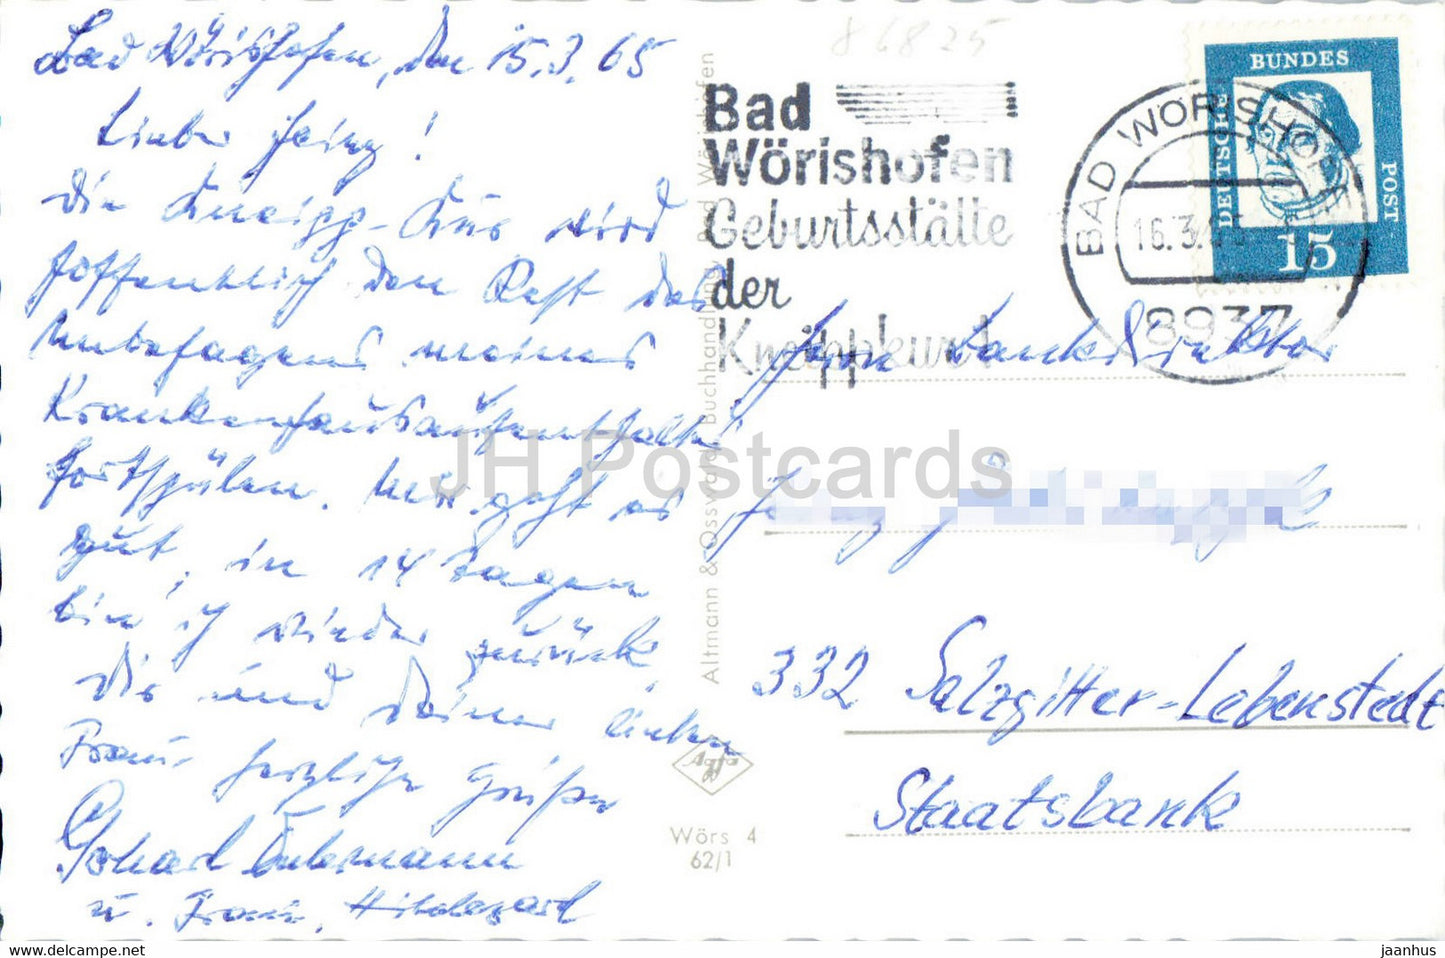 86825
Bad Wörishofen, den 15.3.65
Lieber Heinz!
Die Kneipp-Kur wird
hoffentlich den Rest des
Unbehagens meines
Krankenhausaufenthaltes
fortspülen. Mir geht es
gut, in 14 Tagen
bin ich wieder zurück.
Dir und Deiner lieben
Frau herzliche Grüße
Gerhard
u. Frau, Hildegard
Altmann & Osswald, Buchhandlung, Bad Wörishofen
Bad
Wörishofen
Geburtsstätte
der
Kneippkur!
BAD WÖRISHOFEN
16.3.65
8937
DEUTSCHE BUNDESPOST
15
Herrn Bankdirektor
332 Salzgitter-Lebenstedt
Staatsbank
Agfa
Wörs 4
62/1
JH Postcards
www.delcampe.net
jaanhus